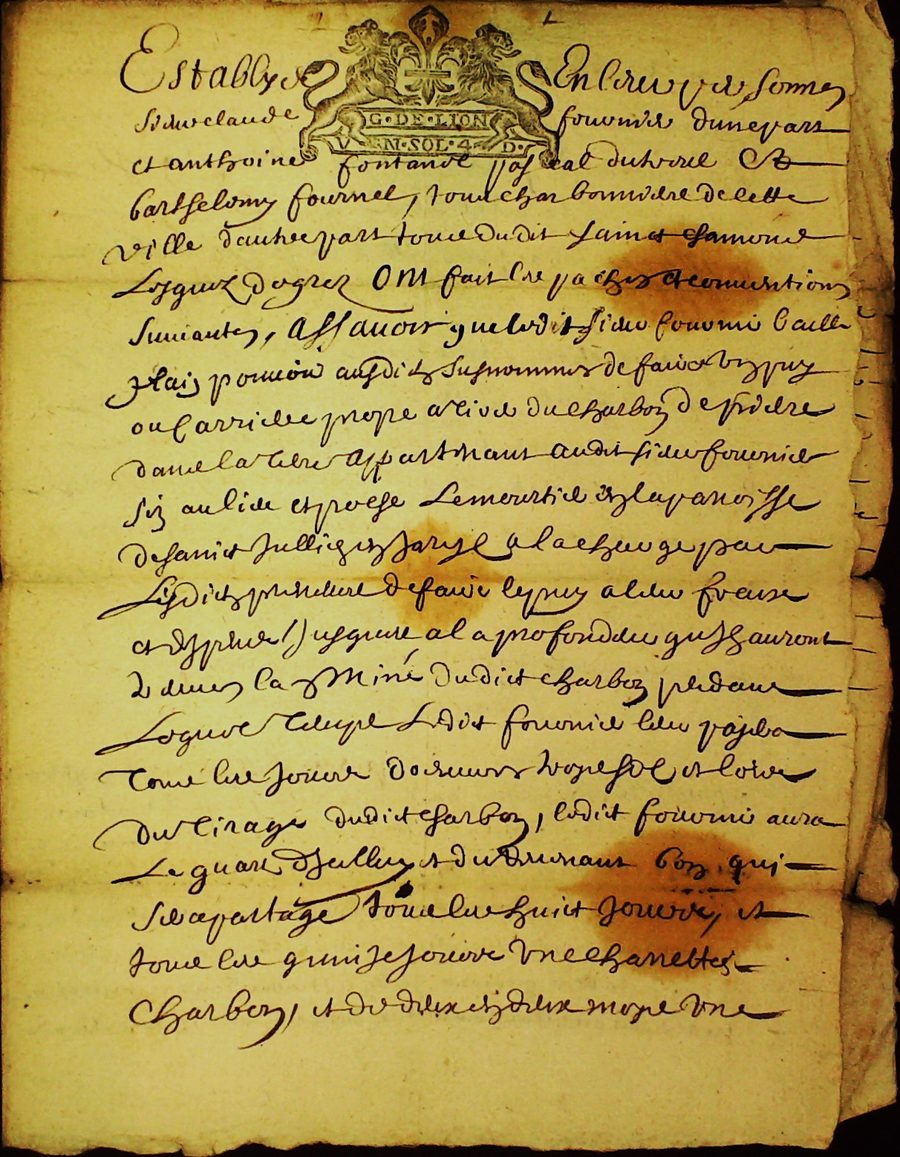 Establys En leurs personnes
G·DE·LION
VN·SOL·4·D·
sieur claude fournier d'une part
et anthoine fontanel pascal duhorel Et
barthelemy fournel, tous charbonniers de cette
ville d'autre part tous dudit sainct chamond
Lesquelz de grez Ont fait les paches et conventions
suivantes, Assavoir que ledit sieur fournier baille
plain pouvoir ausdictz susnommes de faire un puy
ou carriere propre a tirer du charbon de pierre
dans la terre appartenant audit sieur fournier
siz au lieu et proche Le mourtier en la parroisse
de sainct Jullien en Jarest a la charge par
Lesdictz preneurs de faire le puy a leur fraix
et despens Jusques a la profondeur qu'ilz auront
la Mine dudict charbon pendant
Lequel temps Ledict fournier leur payera
tous les jours et lors
du tirage dudict charbon, ledict fournier aura
Le quart d'icelluy et du provenant bon, qui
se apartage tous les huict jours, et
tous les quinze jours une charrettee
charbon, et de deux en deux moys une